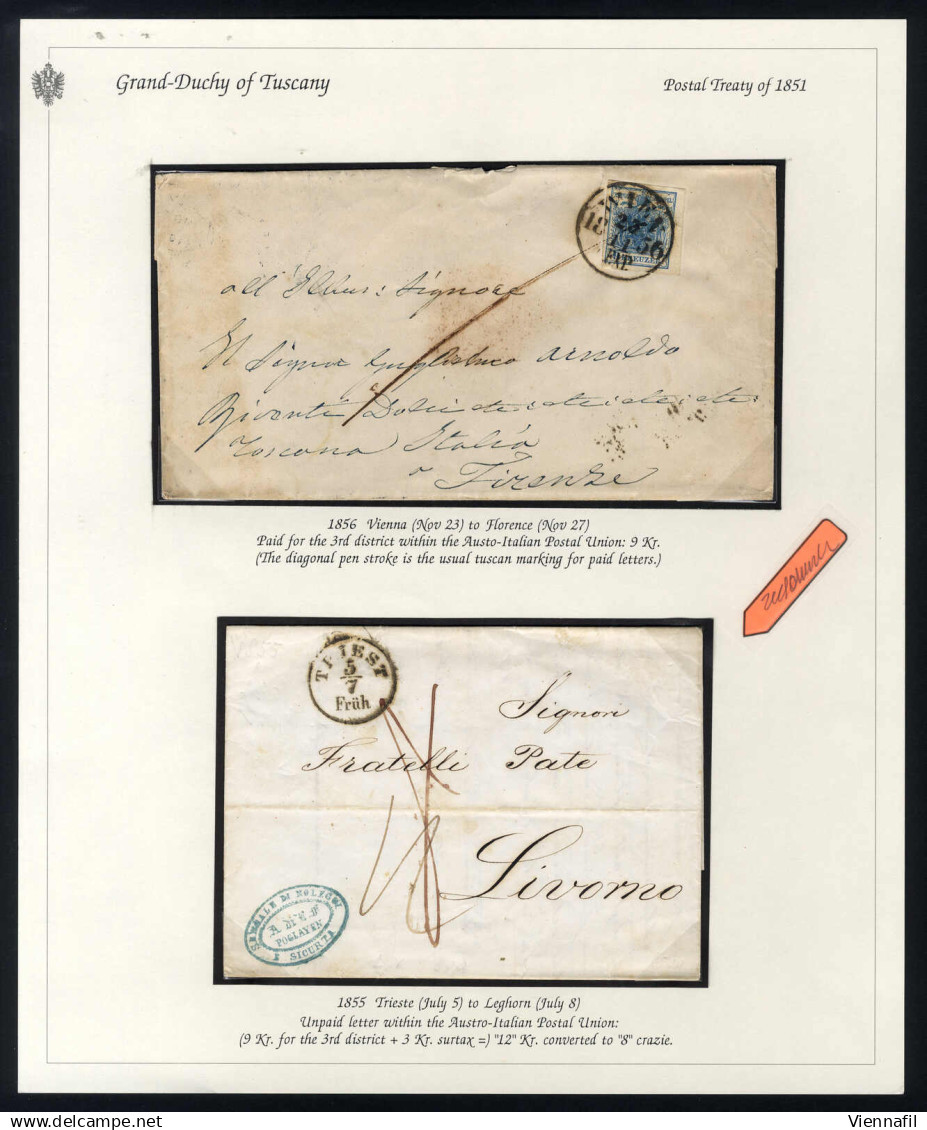 Grand-Duchy of Tuscany
Postal Treaty of 1851
WIEN
KREUZER
all' Signore
Il Signor Guglielmo Arnoldo
Toscana Italia
a Firenze
1856 Vienna (Nov 23) to Florence (Nov 27)
Paid for the 3rd district within the Austo-Italian Postal Union: 9 Kr.
(The diagonal pen stroke is the usual tuscan marking for paid letters.)
TRIEST
5
7
Früh
Signori
Fratelli Pate
Livorno
SENSALE DI NOLEGGI
POGLAYEN
E SICURTA
1855 Trieste (July 5) to Leghorn (July 8)
Unpaid letter within the Austro-Italian Postal Union:
(9 Kr. for the 3rd district + 3 Kr. surtax =) "12" Kr. converted to "8" crazie.
Viennafil